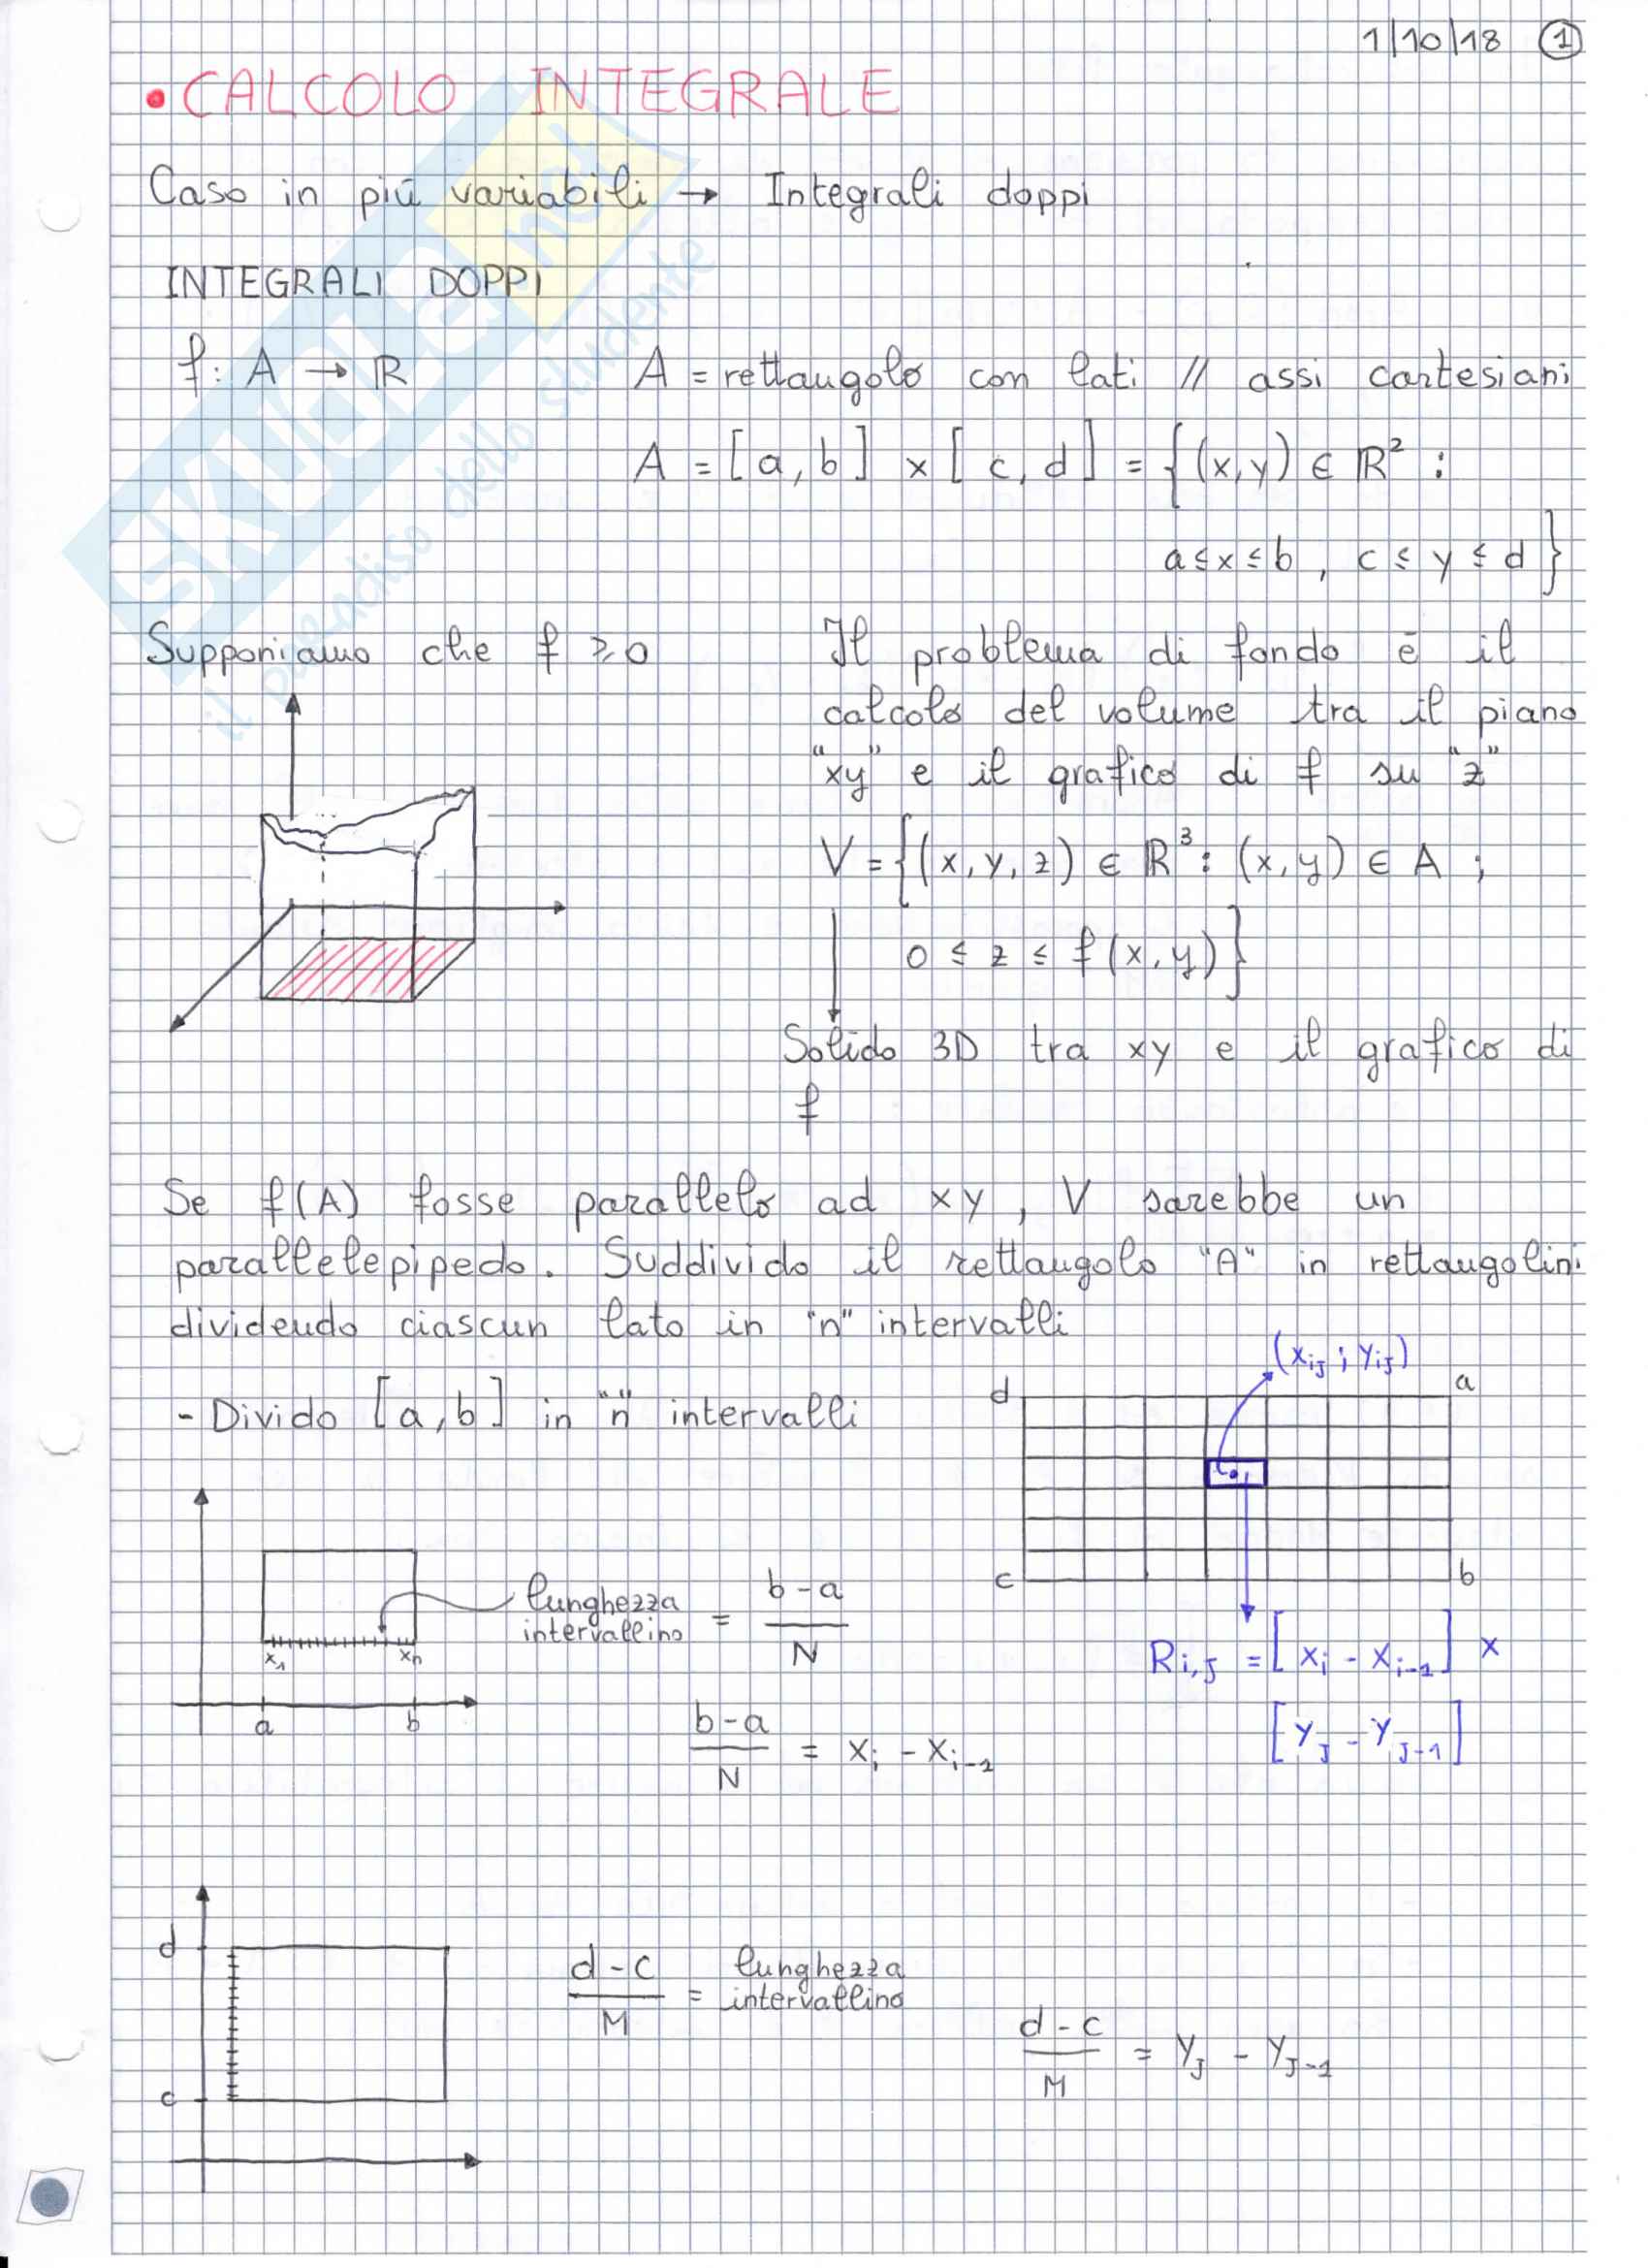 1/10/18 ①
• CALCOLO INTEGRALE
Caso in più variabili → Integrali doppi
INTEGRALI DOPPI
f: A → ℝ A = rettangolo con lati // assi cartesiani
A = [a, b] × [c, d] = {(x, y) ∈ ℝ² :
a ≤ x ≤ b , c ≤ y ≤ d}
Supponiamo che f ≥ 0
Il problema di fondo è il
calcolo del volume tra il piano
"xy" e il grafico di f su "z"
V = {(x, y, z) ∈ ℝ³ : (x, y) ∈ A ;
0 ≤ z ≤ f(x, y)}
Solido 3D tra xy e il grafico di
f
Se f(A) fosse parallelo ad xy, V sarebbe un
parallelepipedo. Suddivido il rettangolo "A" in rettangolini
dividendo ciascun lato in "n" intervalli
- Divido [a, b] in "n" intervalli
(xij ; yij)
d a
c b
Ri,j = [xi - xi-1] ×
[yj - yj-1]
x1 xn
a b
lunghezza
intervallino = b-a / N
b-a / N = xi - xi-1
d
c
d-c / M = lunghezza
intervallino
d-c / M = yj - yj-1
SKUOLA.net
il paradiso dello studente